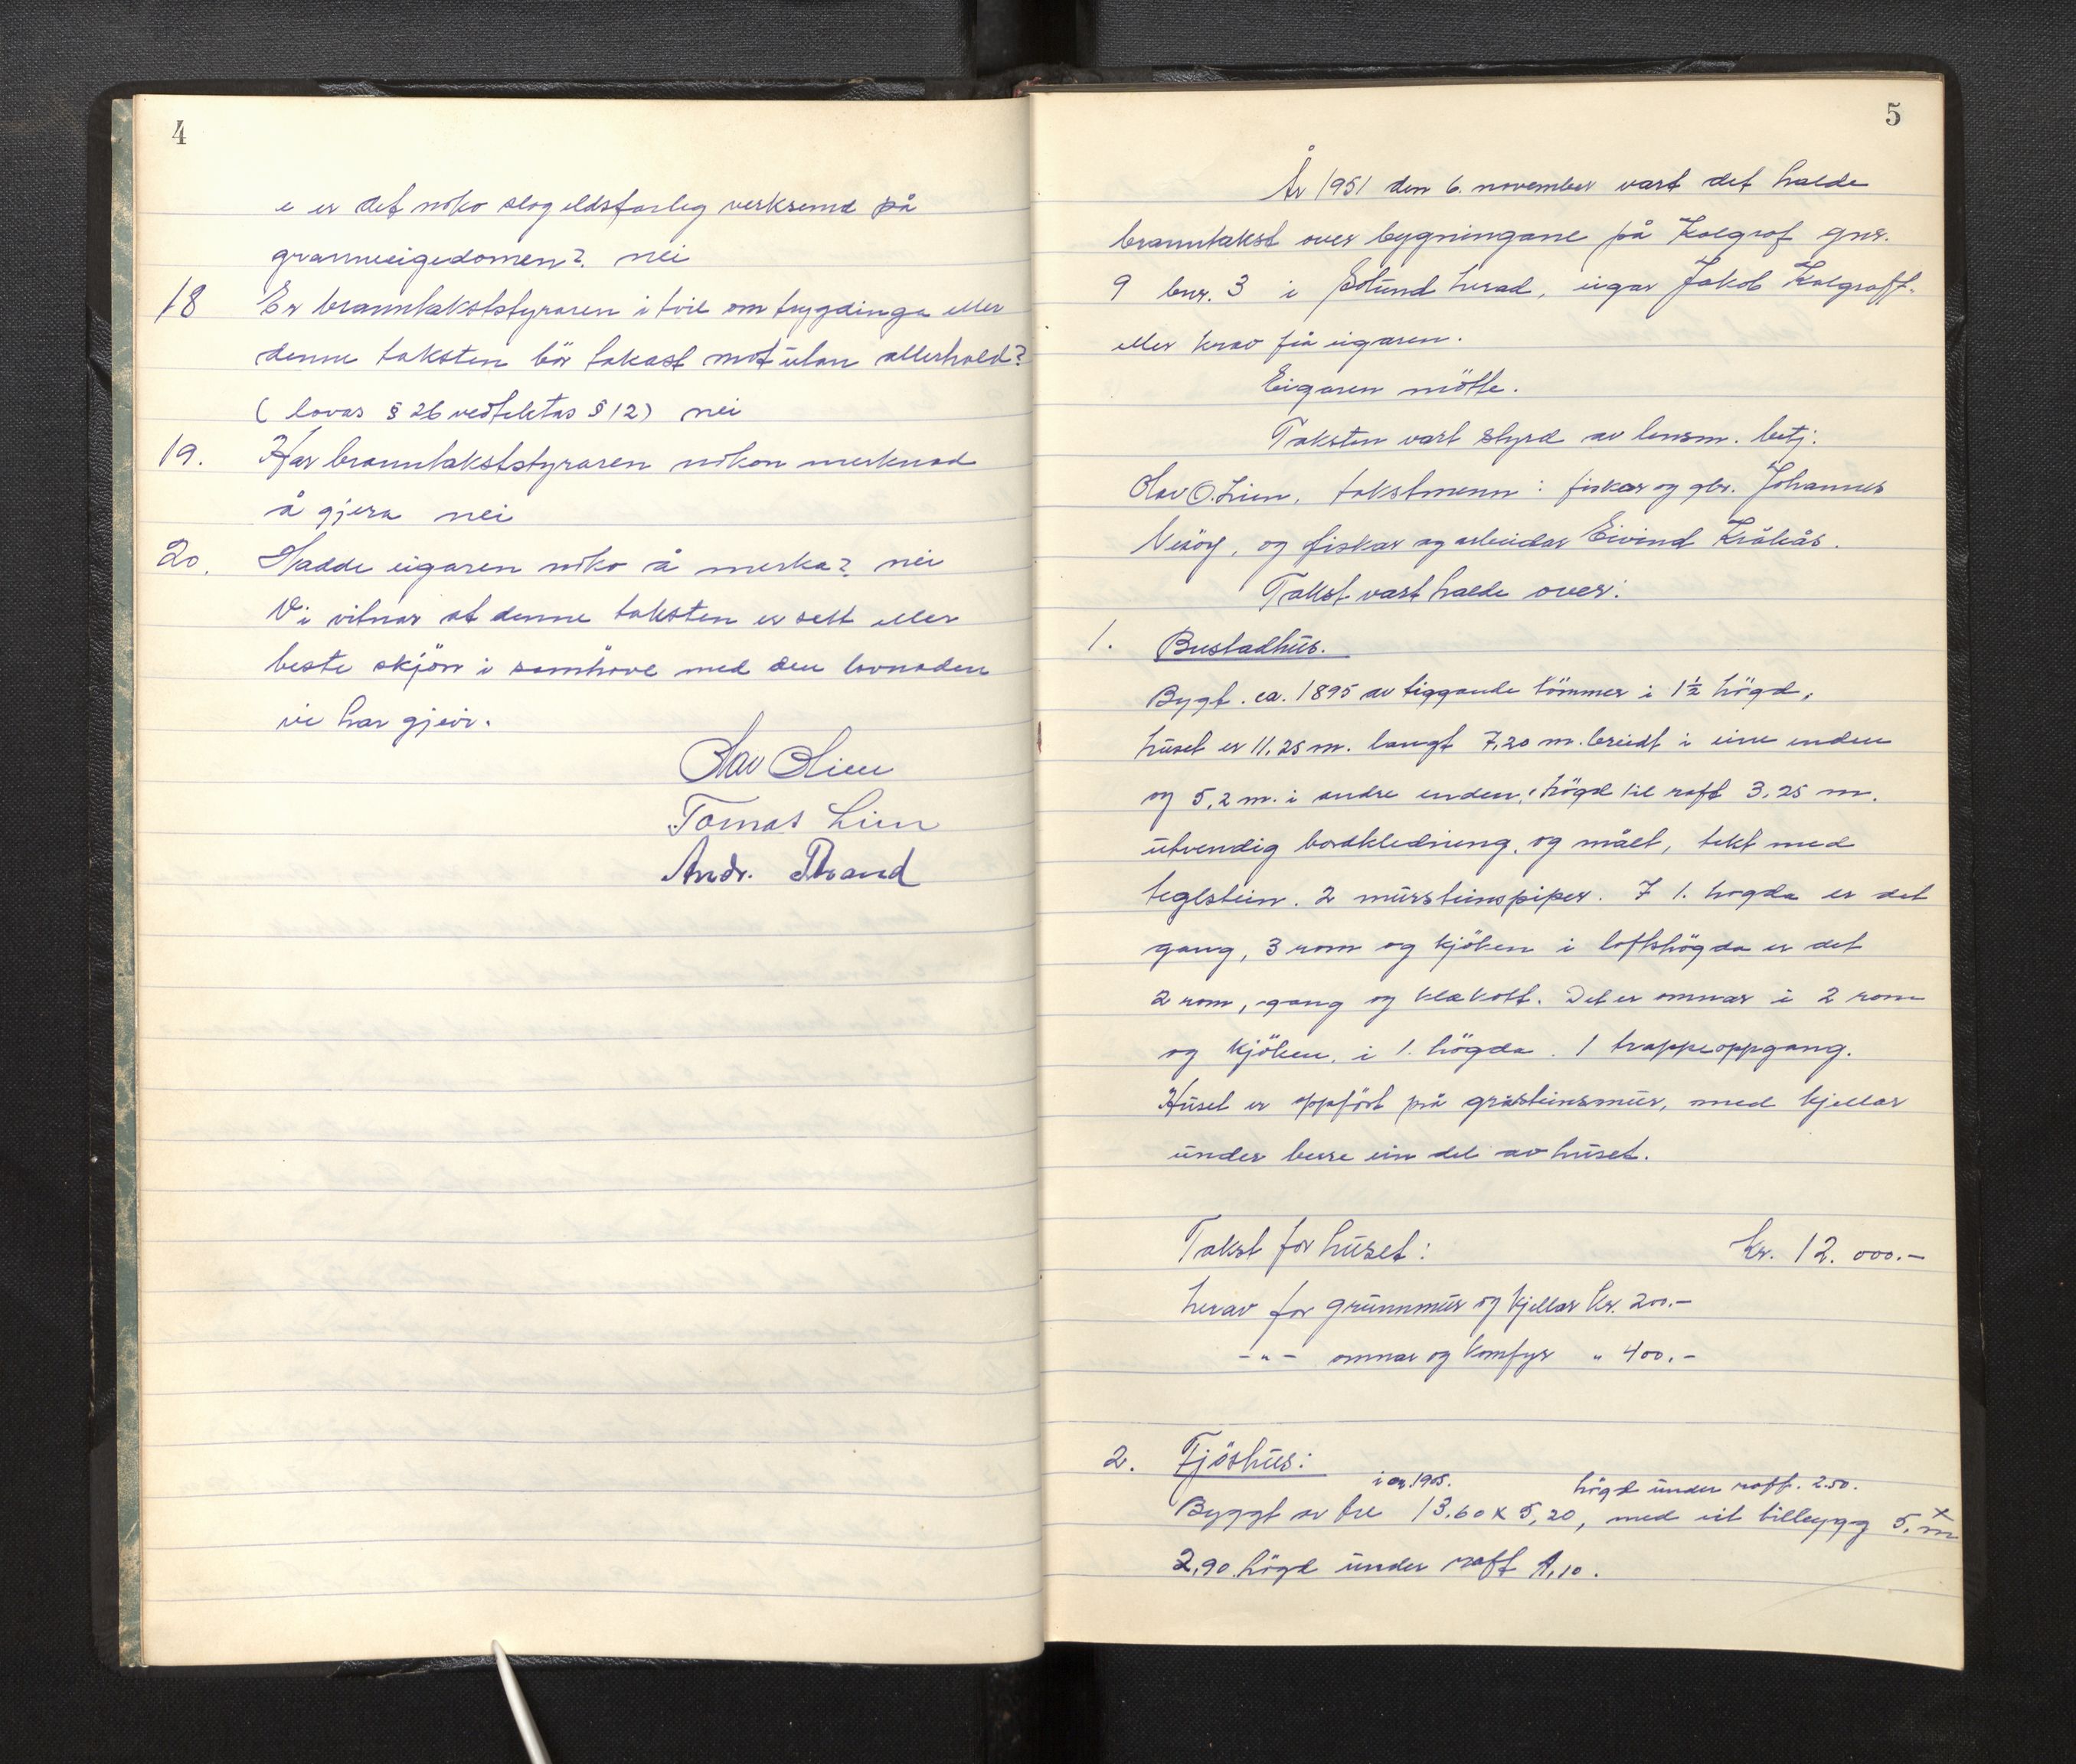 4
e er det noko slag eldsfarleg verksemd på
granneeigedomen? nei
18 Er branntakststyraren i tvil om trygdinga eller
denne taksten bör takast mot utan atterhald?
( lovas § 26 vedtektas § 12) nei
19. Har branntakststyraren nokon merknad
å gjera nei
20. Hadde eigaren noko å merka? nei
Vi vitnar at denne taksten er sett etter
beste skjön i samhöve med den lovnaden
vi har gjevi.
Olav Olien
Tomas Lien
Andr. Strand
5
År 1951 den 6. november vart det halde
branntakst over bygningane på Kolgrof gnr.
9 bnr. 3 i Solund herad, eigar Jakob Kolgroff.
etter krav frå eigaren.
Eigaren mötte.
Taksten vart styrd av lensm. betj.
Olav O. Lien, takstmenn: fiskar og gbr. Johannes
Nesöy, og fiskar og arbeidar Eivind Kråkås.
Takst vart halde over:
1. Bustadhus.
Bygt. ca. 1895 av liggande tömmer i 1½ högd,
huset er 11.25 m. langt 7,20 m. breidt i eine enden
og 5,2 m. i andre enden, högd til raft 3,25 m.
utvendig bordkledning, og målt, tekt med
teglstein. 2 mursteinspiper. I 1. högda er det
gang, 3 rom og kjöken i loftshögda er det
2 rom, gang og klekott. Det er omnar i 2 rom
og kjöken, i 1. högda. 1 trappeoppgang.
Huset er oppfört på gråsteinsmur, med kjellar
under berre ein del av huset.
Takst for huset: Kr. 12.000.-
herav for grunnmur og kjellar Kr. 200.-
-"- omnar og komfyr " 400.-
2. Fjöshus:
i ca. 1905. högd under raft. 2.50.
Byggt av tre 13.60 x 5,20, med eit tilbygg 5. m x
2,90. högd under raft 1,10.